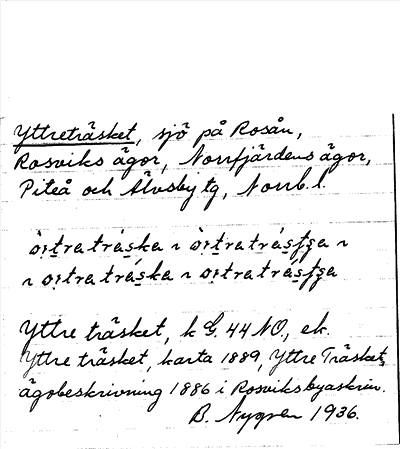 Yttreträsket, sjö på Rosån,
Rosviks ägor, Norrfjärdens ägor,
Piteå och Älvsby tg, Norrb. l.
Yttre träsket, k G. 44 NO., ek.
Yttre träsket, karta 1889, Yttre Träsket,
ägobeskrivning 1886 i Rosviks byaskrin.
B. Nygren 1936.